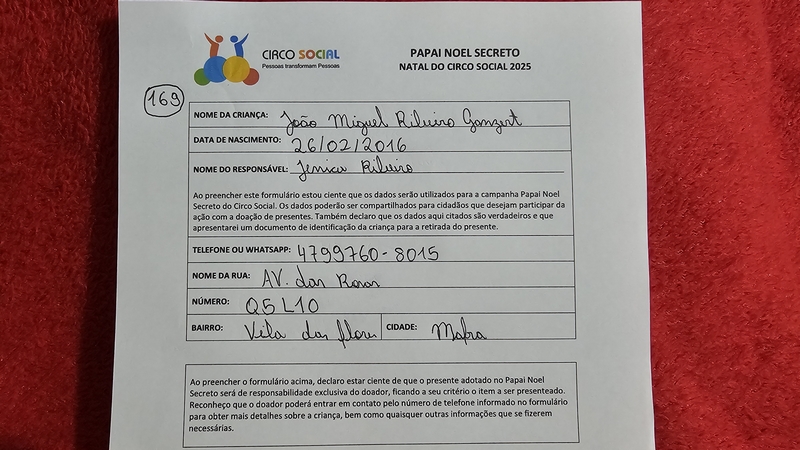 CIRCO SOCIAL
Pessoas transformam Pessoas
PAPAI NOEL SECRETO
NATAL DO CIRCO SOCIAL 2025
169
NOME DA CRIANÇA: João Miguel Ribeiro Ganzert
DATA DE NASCIMENTO: 26/02/2016
NOME DO RESPONSÁVEL: Jenica Ribeiro
Ao preencher este formulário estou ciente que os dados serão utilizados para a campanha Papai Noel
Secreto do Circo Social. Os dados poderão ser compartilhados para cidadãos que desejam participar da
ação com a doação de presentes. Também declaro que os dados aqui citados são verdadeiros e que
apresentarei um documento de identificação da criança para a retirada do presente.
TELEFONE OU WHATSAPP: 4799760-8015
NOME DA RUA: AV. das Rosas
NÚMERO: Q5 L10
BAIRRO: Vila das flores CIDADE: Mafra
Ao preencher o formulário acima, declaro estar ciente de que o presente adotado no Papai Noel
Secreto será de responsabilidade exclusiva do doador, ficando a seu critério o item a ser presenteado.
Reconheço que o doador poderá entrar em contato pelo número de telefone informado no formulário
para obter mais detalhes sobre a criança, bem como quaisquer outras informações que se fizerem
necessárias.